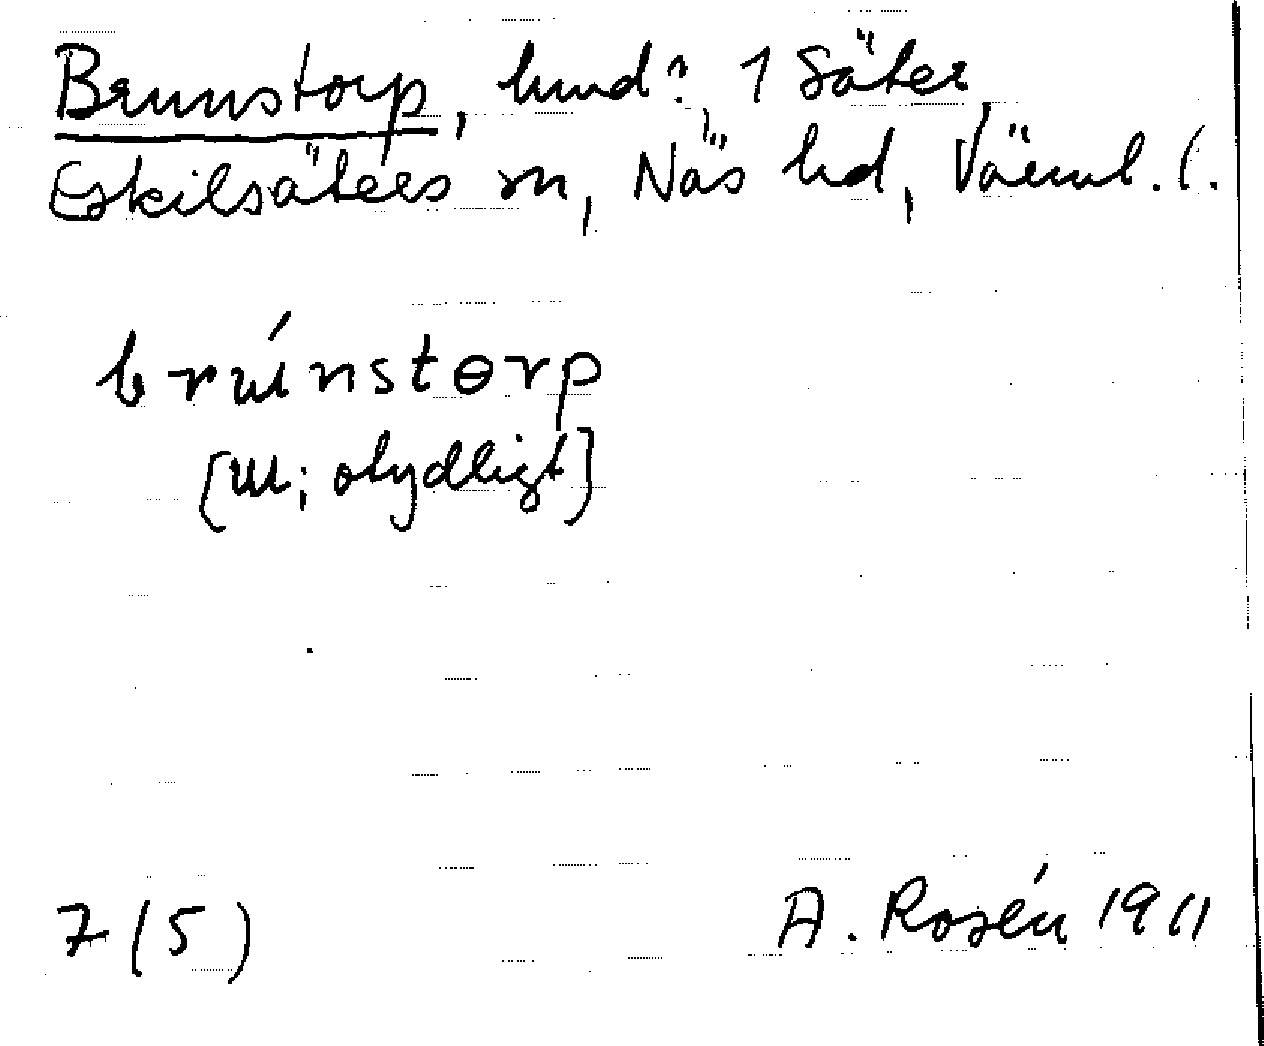 Brunstorp, hmd?, 1 Säter,
Eskilsäters sn, Näs hd, Värml. l.
brɯ́nstɵrp
[ɯ; otydligt]
7 (5) A. Rosén 1911